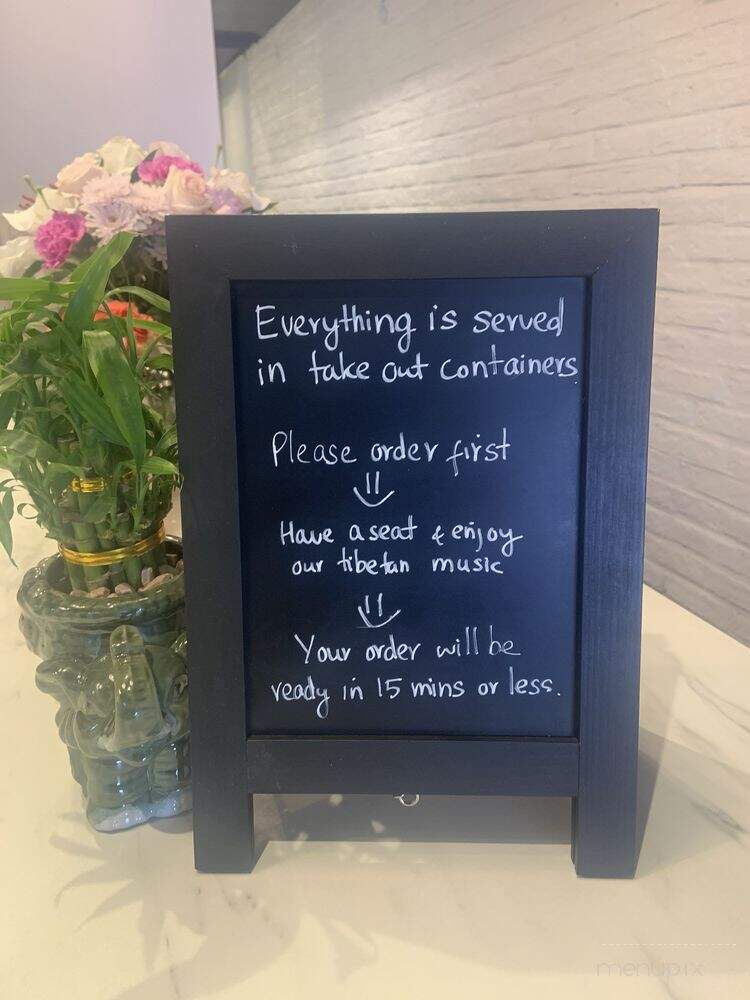 Everything is served
in take out containers
Please order first
Have a seat & enjoy
our tibetan music
Your order will be
ready in 15 mins or less.
menupix